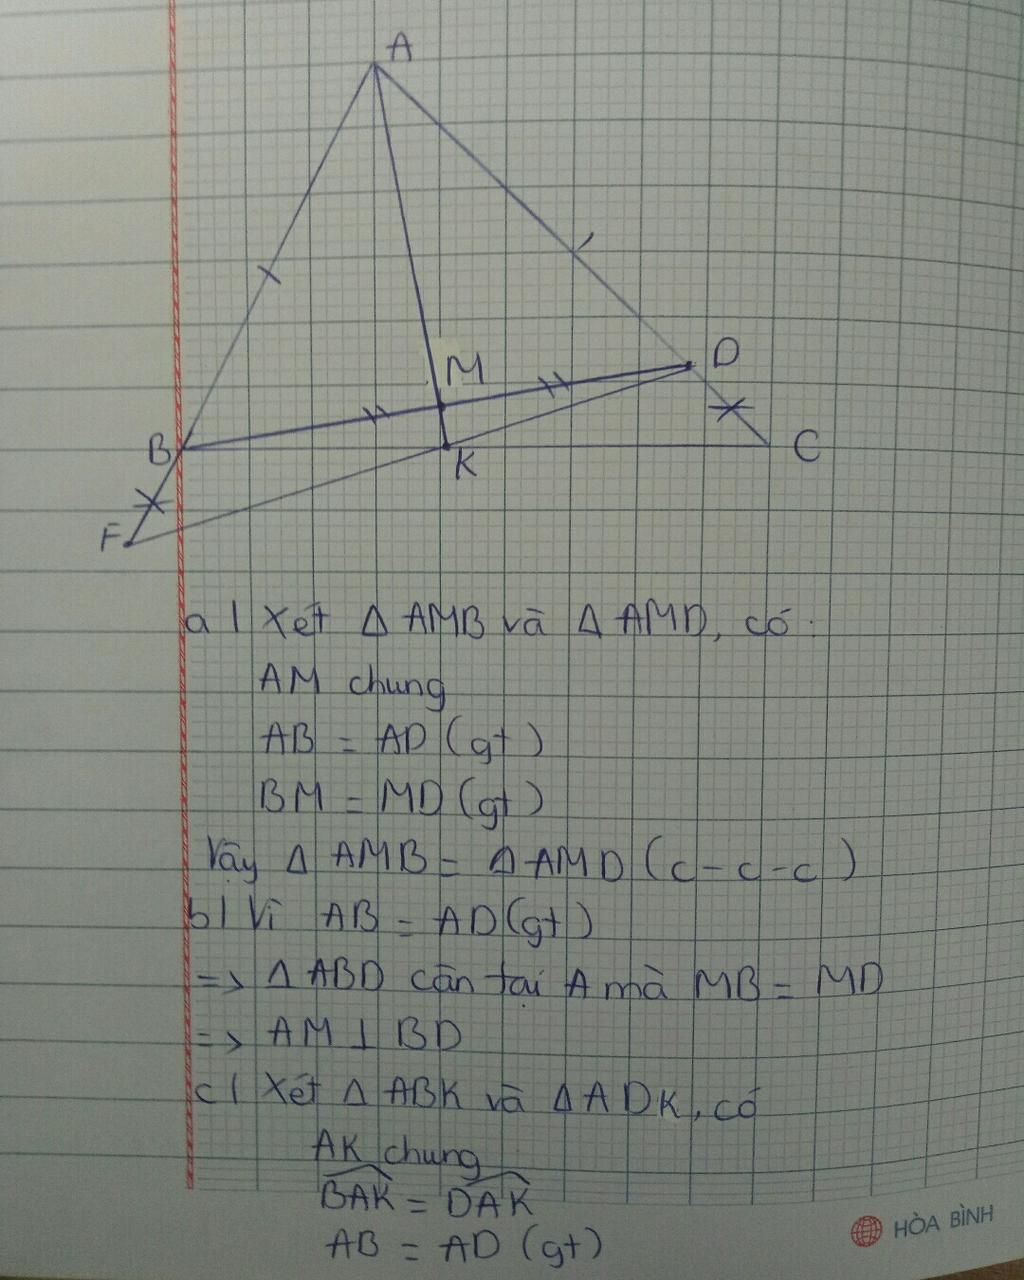 A
M
D
B
K
C
F
a) Xét Δ AMB và Δ AMD, có:
AM chung
AB = AD (gt)
BM = MD (gt)
Vậy Δ AMB = Δ AMD (c-c-c)
b) Vì AB = AD (gt)
=> Δ ABD cân tại A mà MB = MD
=> AM ⊥ BD
c) Xét Δ ABK và Δ ADK, có
AK chung
\widehat{BAK} = \widehat{DAK}
AB = AD (gt)
HÒA BÌNH